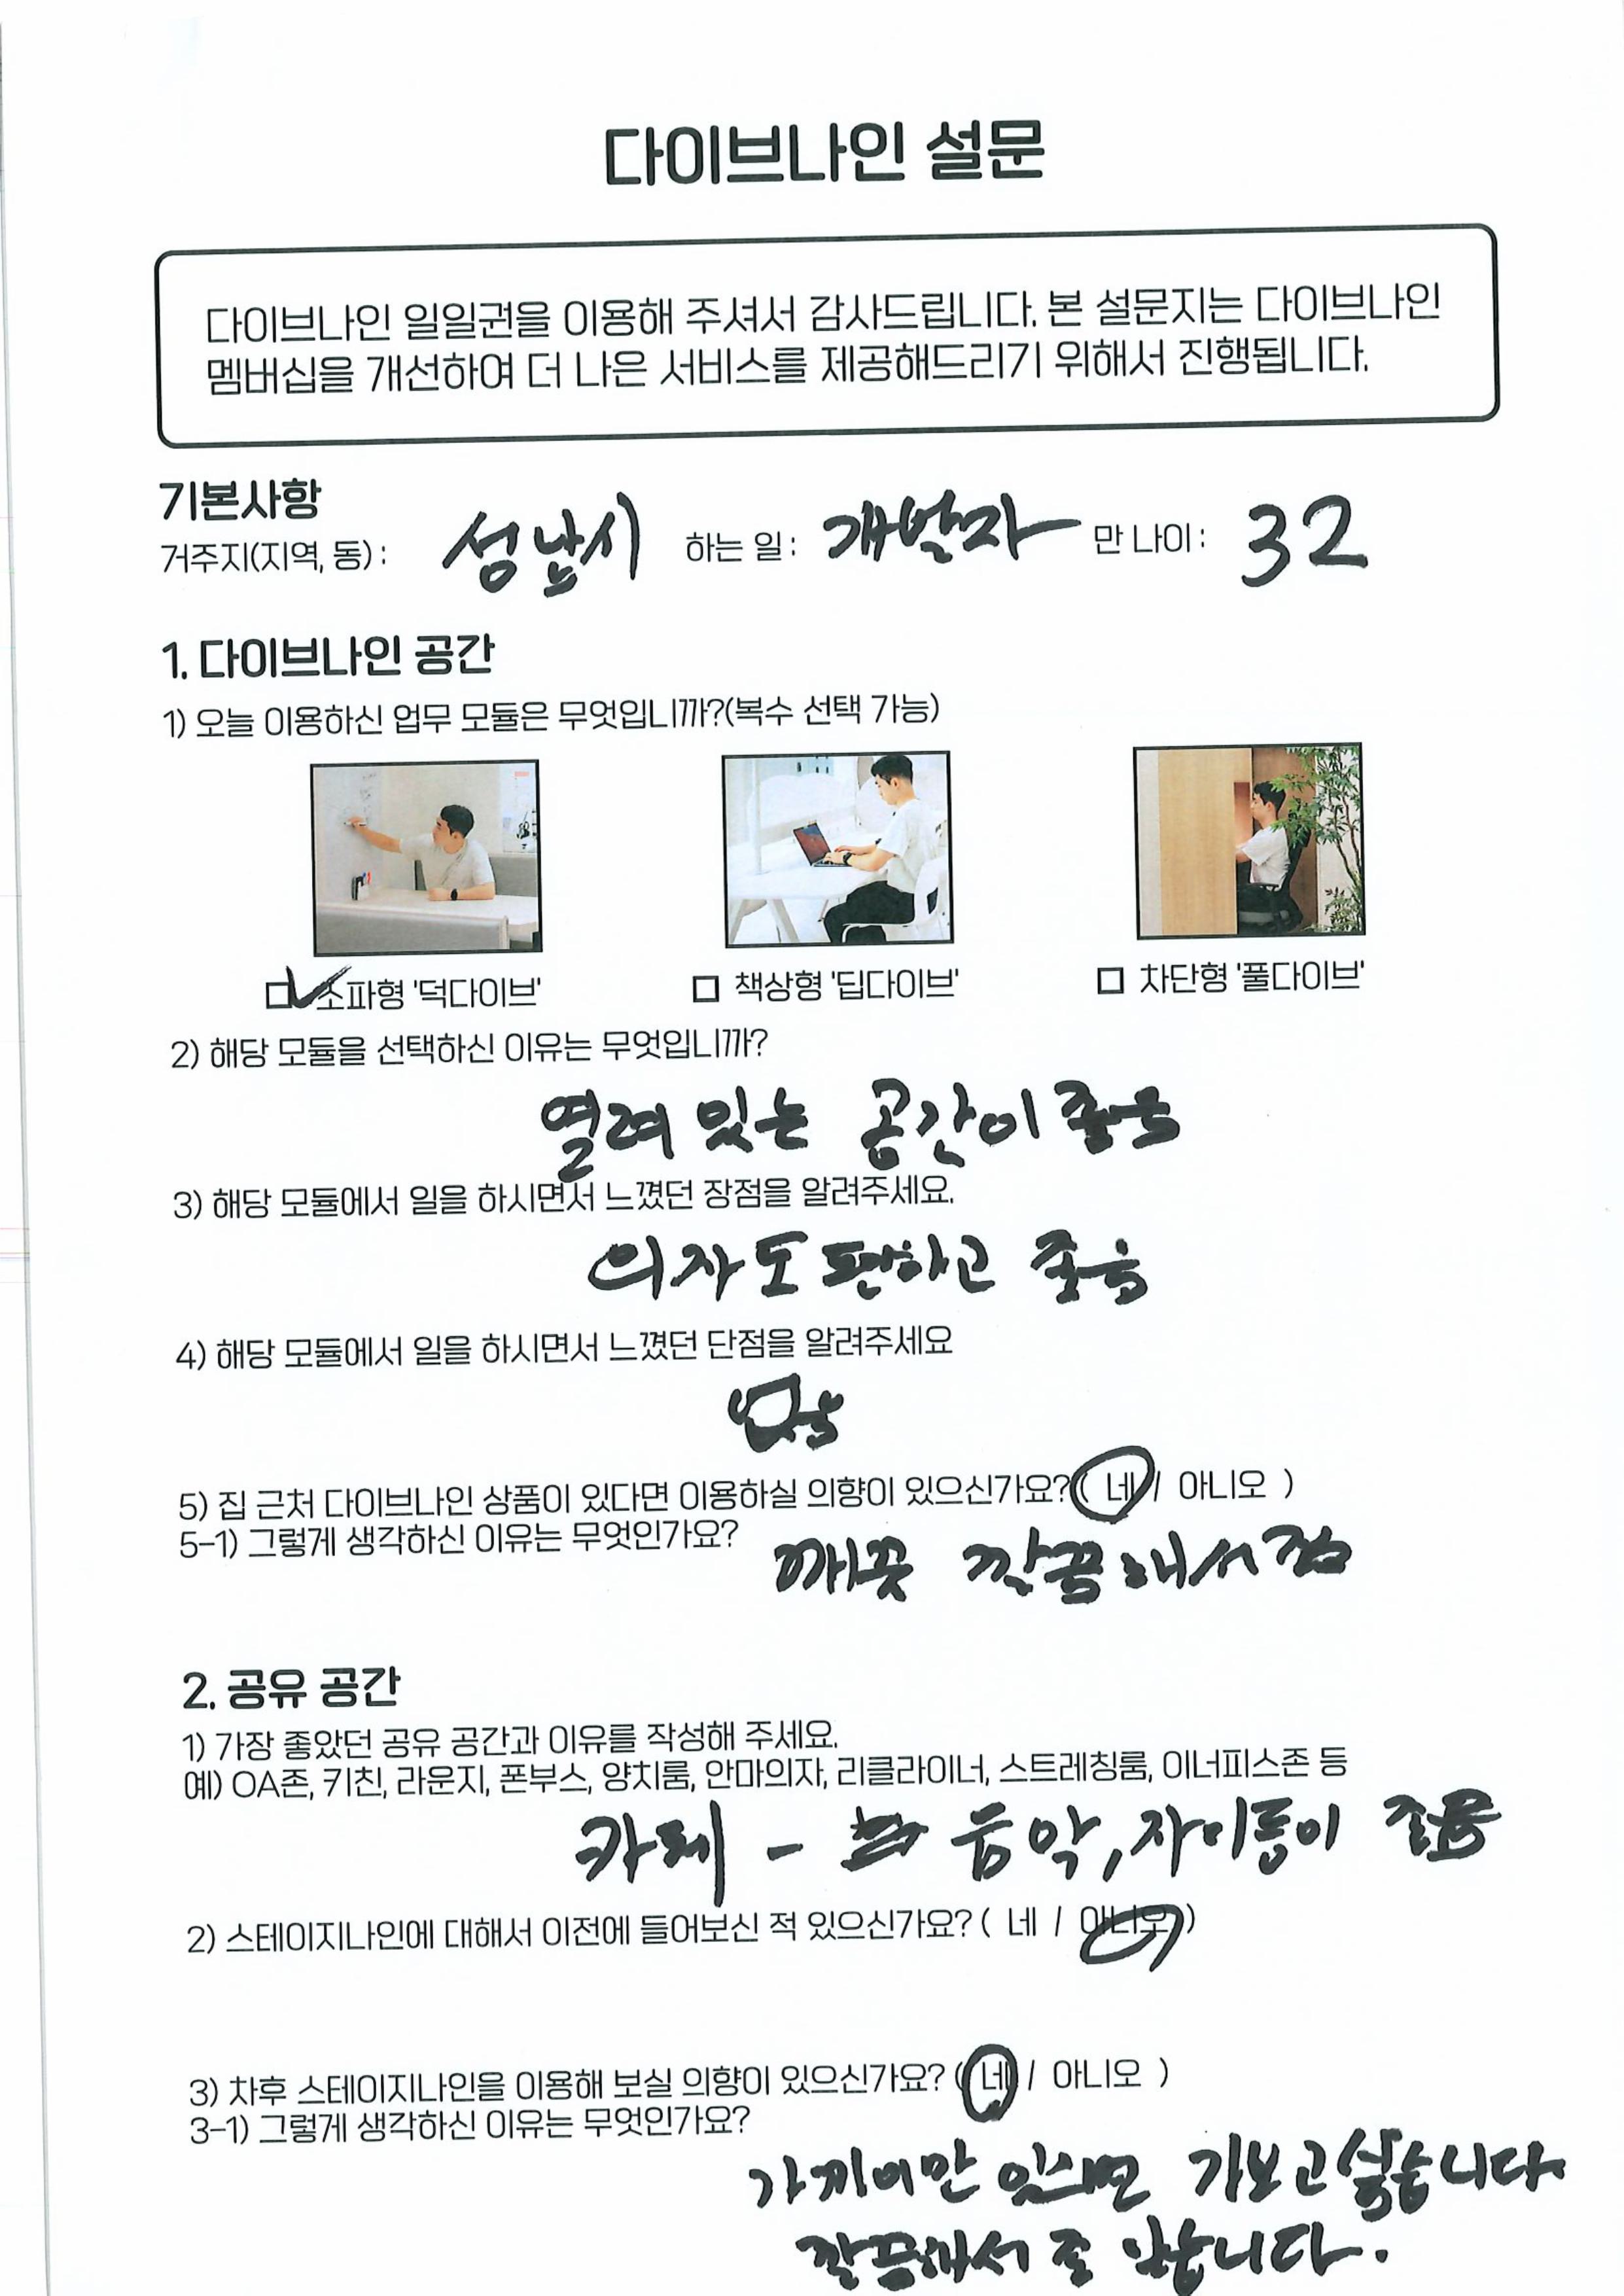 다이브나인 설문
다이브나인 일일권을 이용해 주셔서 감사드립니다. 본 설문지는 다이브나인
멤버십을 개선하여 더 나은 서비스를 제공해드리기 위해서 진행됩니다.
기본사항
거주지(지역, 동) : 성남시 하는 일 : 개발자 만 나이 : 32
1. 다이브나인 공간
1) 오늘 이용하신 업무 모듈은 무엇입니까?(복수 선택 가능)
소파형 '덕다이브' 책상형 '딥다이브' 차단형 '풀다이브'
2) 해당 모듈을 선택하신 이유는 무엇입니까?
열려 있는 공간이 좋음
3) 해당 모듈에서 일을 하시면서 느꼈던 장점을 알려주세요.
의자도 편하고 좋음
4) 해당 모듈에서 일을 하시면서 느꼈던 단점을 알려주세요
없음
5) 집 근처 다이브나인 상품이 있다면 이용하실 의향이 있으신가요? ( 네 / 아니오 )
5-1) 그렇게 생각하신 이유는 무엇인가요? 깨끗 깔끔해서
2. 공유 공간
1) 가장 좋았던 공유 공간과 이유를 작성해 주세요.
예) OA존, 키친, 라운지, 폰부스, 양치룸, 안마의자, 리클라이너, 스트레칭룸, 이너피스존 등
카페 - 음악, 자이롱이 좋음
2) 스테이지나인에 대해서 이전에 들어보신 적 있으신가요? ( 네 / 아니오 )
3) 차후 스테이지나인을 이용해 보실 의향이 있으신가요? ( 네 / 아니오 )
3-1) 그렇게 생각하신 이유는 무엇인가요?
가까이만 있으면 가보고 싶습니다
깔끔해서 좋습니다.